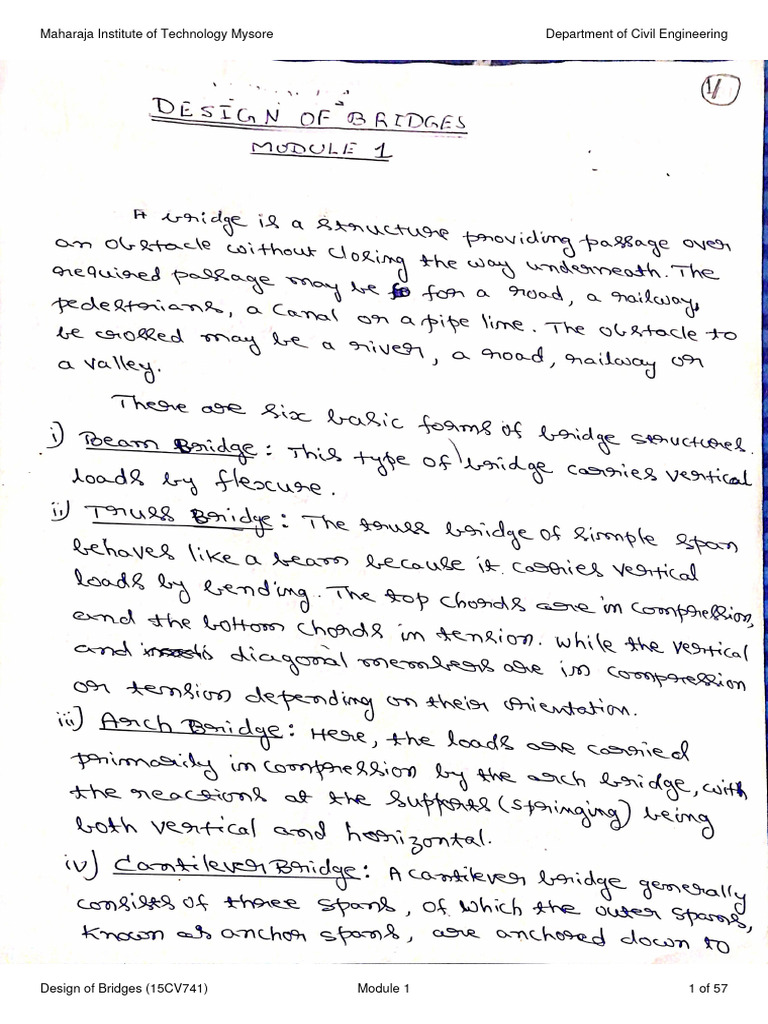 Maharaja Institute of Technology Mysore Department of Civil Engineering
1/
DESIGN OF BRIDGES
MODULE 1
A bridge is a structure providing passage over
an obstacle without closing the way underneath. The
required passage may be for a road, a railway,
pedestrians, a canal or a pipe line. The obstacle to
be crossed may be a river, a road, railway or
a valley.
There are six basic forms of bridge structures.
i) Beam Bridge: This type of bridge carries vertical
loads by flexure.
ii) Truss Bridge: The truss bridge of simple span
behaves like a beam because it carries vertical
loads by bending. The top chords are in compression,
and the bottom chords in tension. While the vertical
and diagonal members are in compression
or tension depending on their orientation.
iii) Arch Bridge: Here, the loads are carried
primarily in compression by the arch bridge, with
the reactions at the supports (springing) being
both vertical and horizontal.
iv) Cantilever Bridge: A cantilever bridge generally
consists of three spans, of which the outer spans,
known as anchor spans, are anchored down to
Design of Bridges (15CV741) Module 1 1 of 57